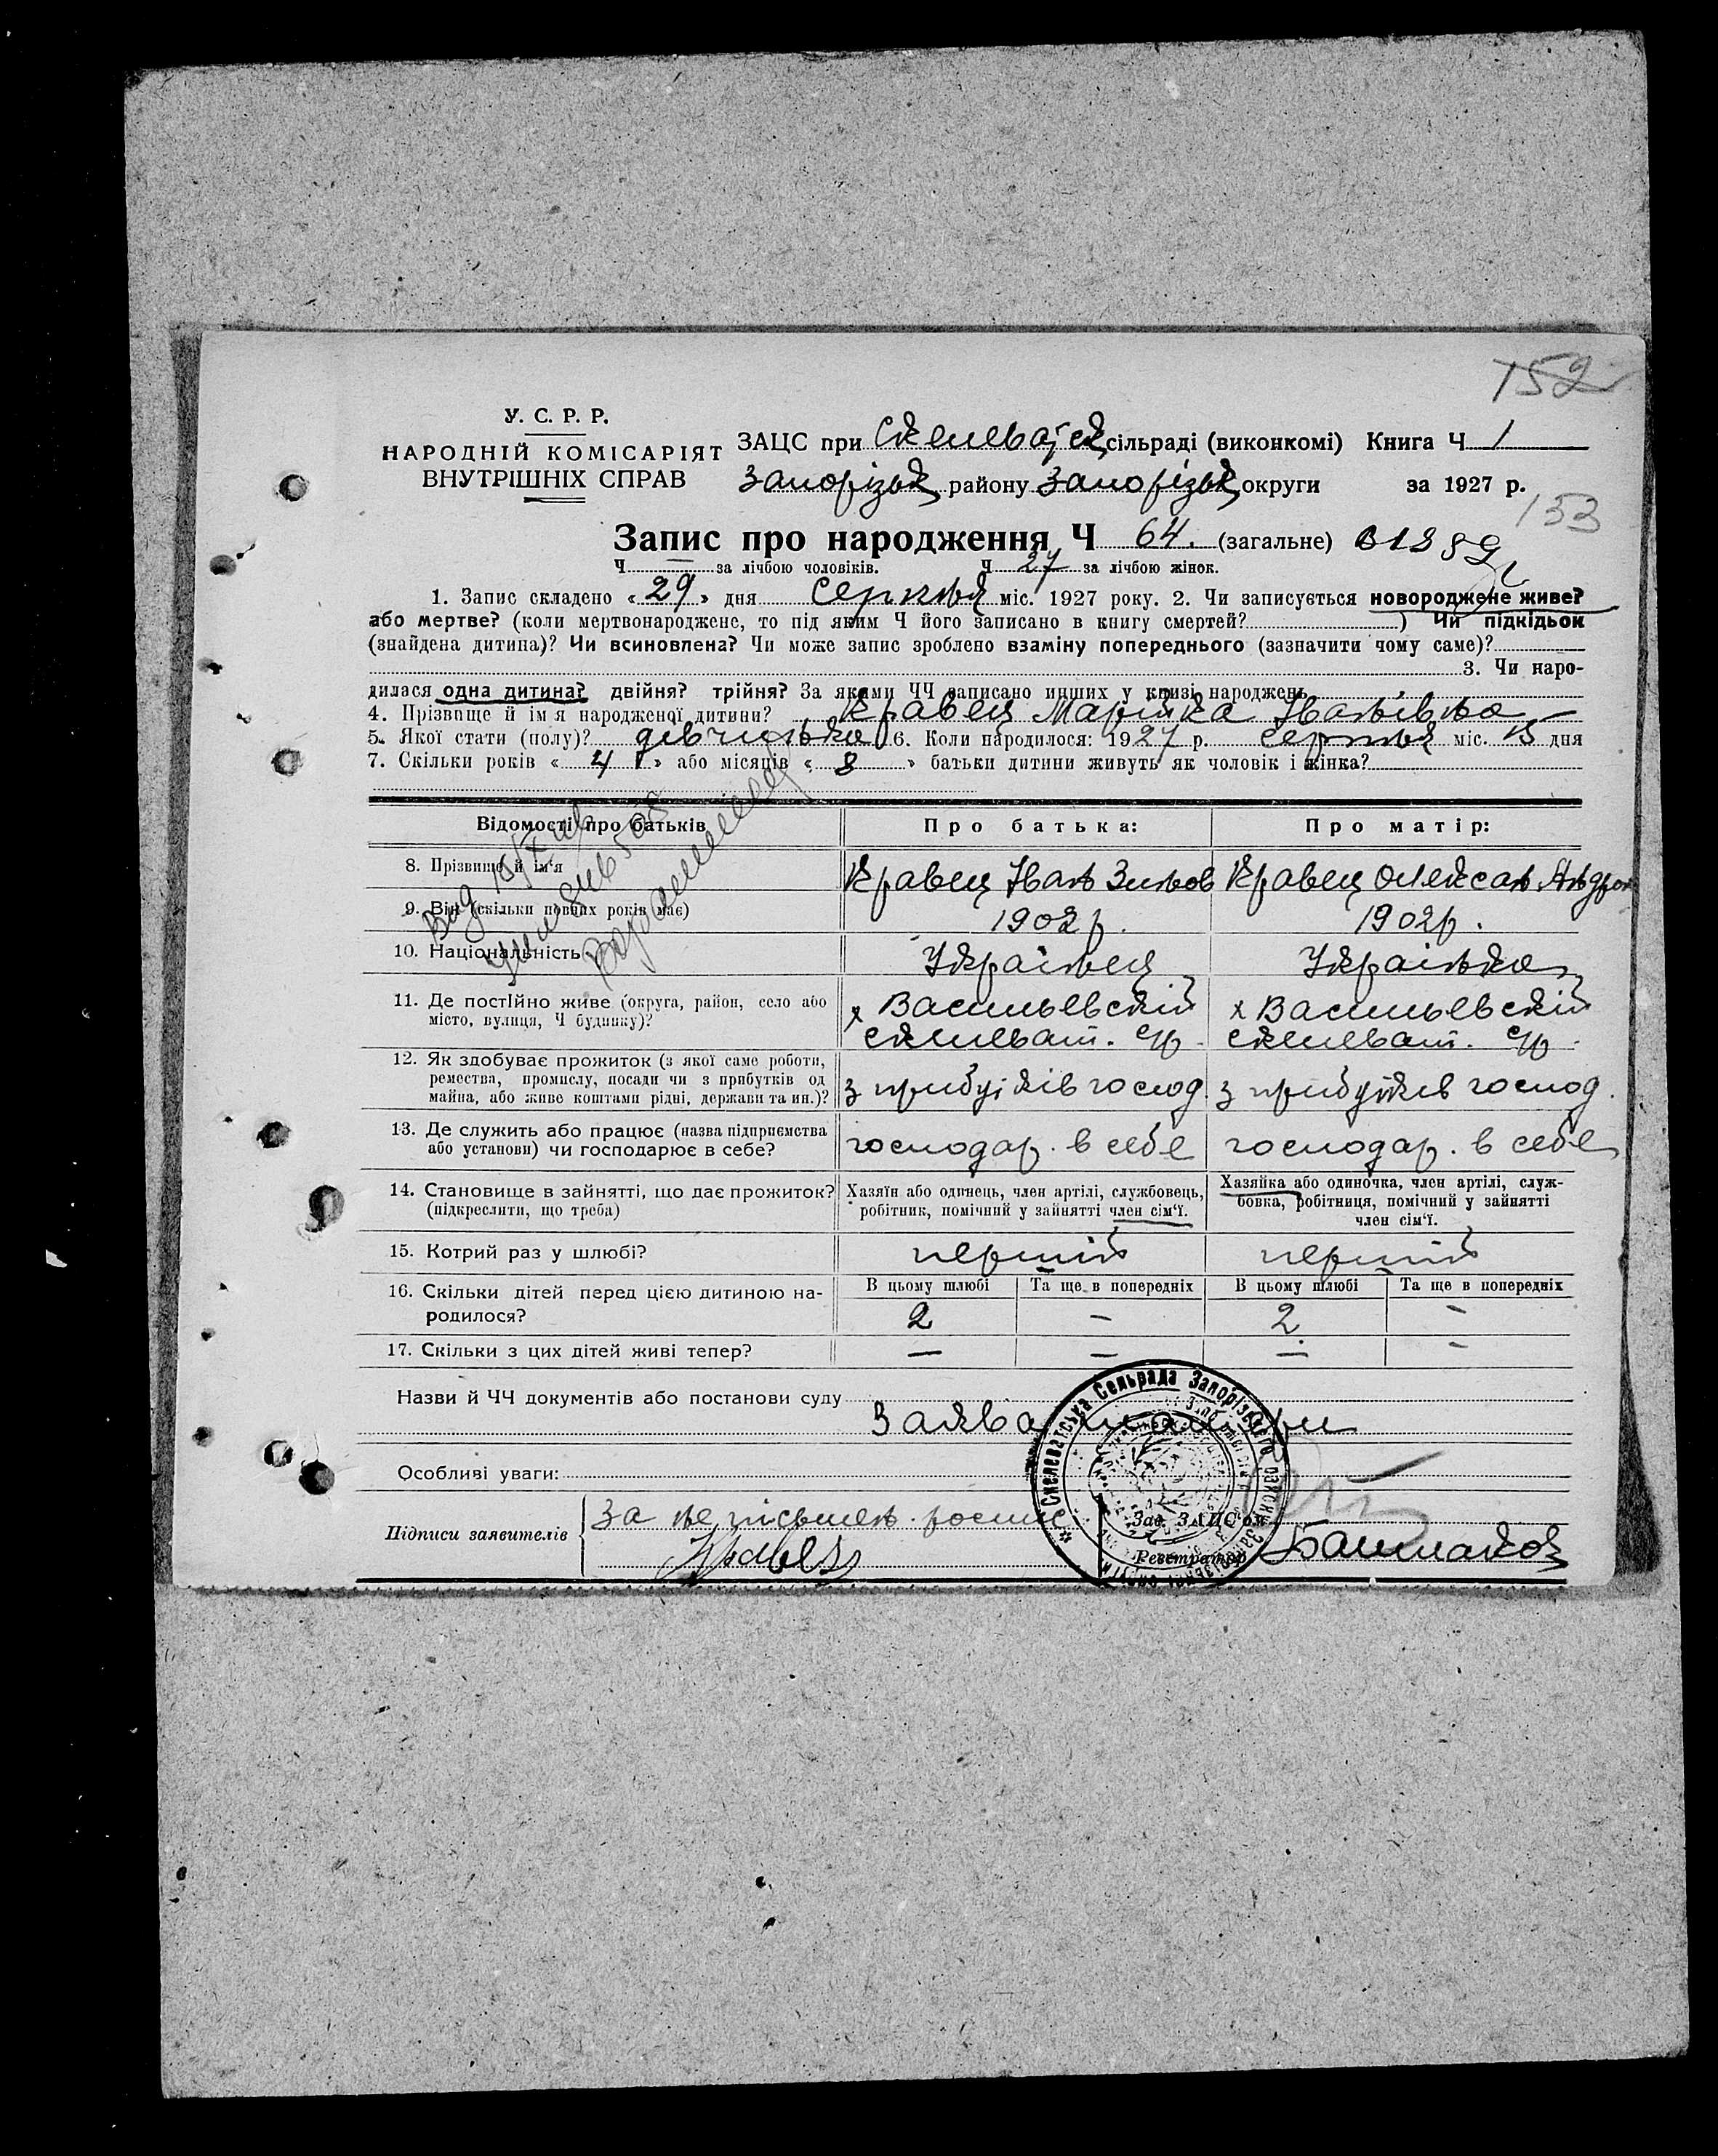 152
У. С. Р. Р.
НАРОДНІЙ КОМІСАРІЯТ
ВНУТРІШНІХ СПРАВ
ЗАЦС при Скелеватск сільраді (виконкомі) Книга Ч 1
Запорізьк району Запорізьк округи за 1927 р.
153
Запис про народження Ч 64. (загальне)
Ч — за лічбою чоловіків. Ч 27 за лічбою жінок.
1. Запис складено « 29 » дня серпня міс. 1927 року. 2. Чи записується новороджене живе?
або мертве? (коли мертвонароджене, то під яким Ч його записано в книгу смертей? ) Чи підкідьок
(знайдена дитина)? Чи всиновлена? Чи може запис зроблено взаміну попереднього (зазначити чому саме)?
3. Чи наро-
дилася одна дитина? двійня? трійня? За якими ЧЧ записано инших у книзі народжень
4. Прізвище й ім'я народженої дитини? Кравец Марійка Іванівна —
5. Якої стати (полу)? дівчинка 6. Коли народилося: 1927 р. серпня міс. 15 дня
7. Скільки років « 4 » або місяців « 8 » батьки дитини живуть як чоловік і жінка?
Відомості про батьків
Про батька:
Про матір:
8. Прізвище й ім'я
Кравец Иван Зинов
Кравец Олександ Андрон
9. Вік (скільки повних років має)
1902 р.
1902 р.
10. Національність
Українець
Українка
11. Де постІйно живе (округа, район, село або
місто, вулиця, Ч будинку)?
х Васильевскій
Скелеват. с/р.
х Васильевскій
Скелеват. с/р.
12. Як здобуває прожиток (з якої саме роботи,
ремества, промислу, посади чи з прибутків од
майна, або живе коштами рідні, держави та ин.)?
з прибутків господ.
з прибутків господ.
13. Де служить або працює (назва підприємства
або установи) чи господарює в себе?
господар. в себе
господар. в себе
14. Становище в зайнятті, що дає прожиток?
(підкреслити, що треба)
Хазяїн або одинець, член артілі, службовець,
робітник, помічний у зайнятті член сім'ї.
Хазяйка або одиночка, член артілі, служ-
бовка, робітниця, помічний у зайнятті
член сім'ї.
15. Котрий раз у шлюбі?
перший
перший
16. Скільки дітей перед цією дитиною на-
родилося?
В цьому шлюбі
Та ще в попередніх
В цьому шлюбі
Та ще в попередніх
2 — 2 —
17. Скільки з цих дітей живі тепер?
— — — —
Назви й ЧЧ документів або постанови суду
Заява матери
Особливі уваги:
Підписи заявителів
за не письмен. роспис
Кравец
Скелеватська Сельрада Запорізького району Запорізької округи
Зав. ЗАЦС'ом
Реєстратор
Башмаков